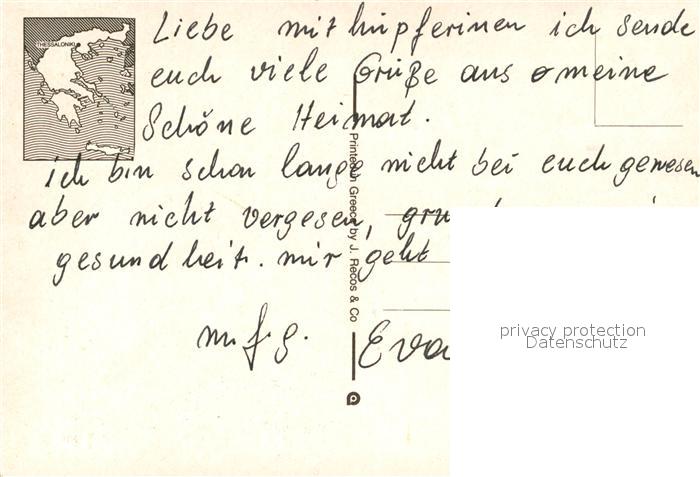 THESSALONIKI
Liebe mithüpferinen ich sende
euch viele Grüße aus meine
Schöne Heimat.
ich bin schon lange nicht bei euch gewesen
aber nicht vergesen,
gesundheit. mir geht
m.f.g. Eva
Printed in Greece by J. Recos & Co
privacy protection
Datenschutz